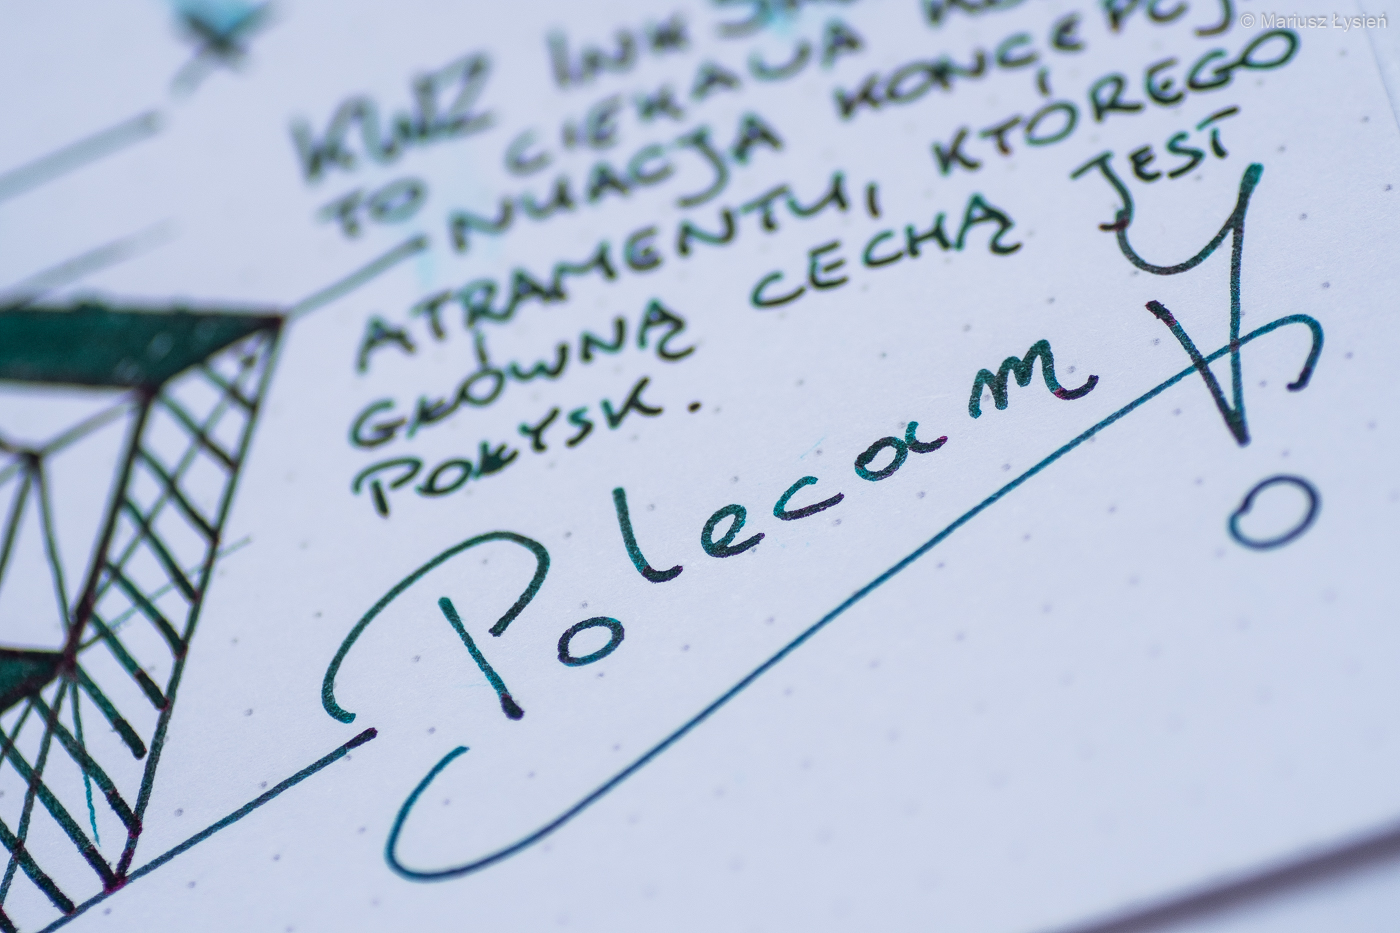 © Mariusz Łysień
KWZ INK
TO CIEKAWA
NUACJA KONCEPCJI
ATRAMENTU, KTÓREGO
GŁÓWNĄ CECHĄ JEST
POŁYSK.
Polecam!